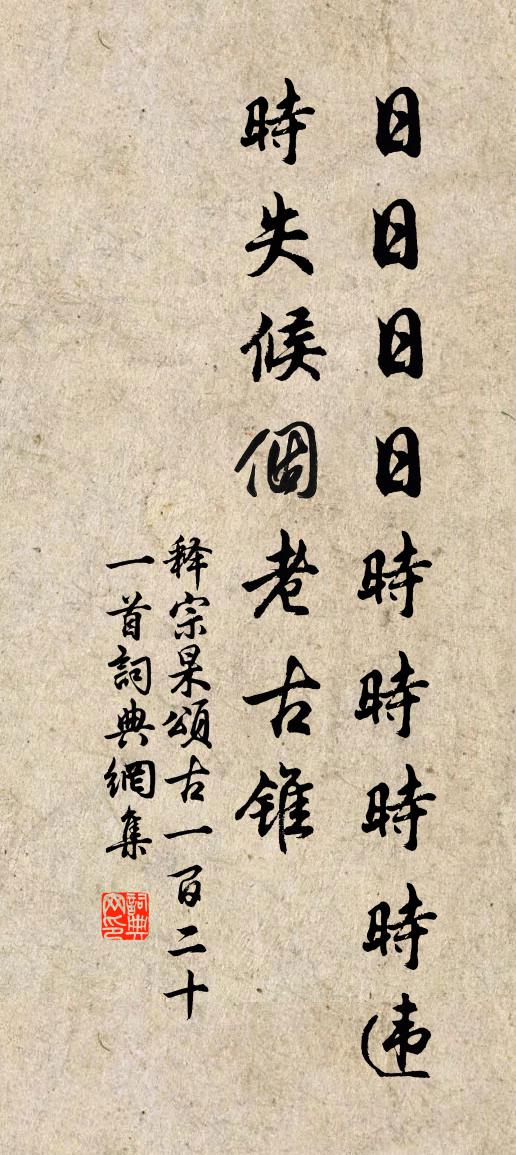 日日日日時時時時违
時失候個老古锥
释宗杲頌古一百二十
一首詞典網集
詞典网印